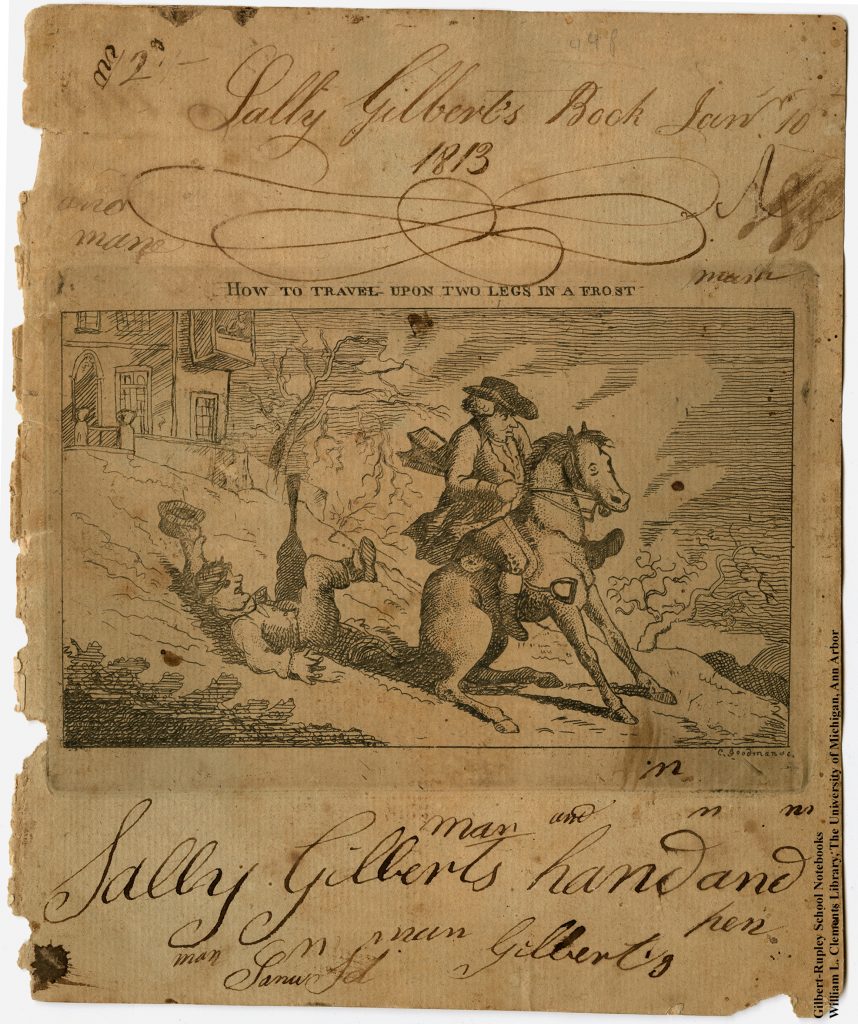 No 2d
Sally Gilbert's Book Janr. 10
1813
and
mane
mam
HOW TO TRAVEL UPON TWO LEGS IN A FROST
C. Goodman sc.
n
man and n m
Sally Gilberts hand and
man n man Gilbert's pen
Gilbert-Rupley School Notebooks
William L. Clements Library, The University of Michigan, Ann Arbor